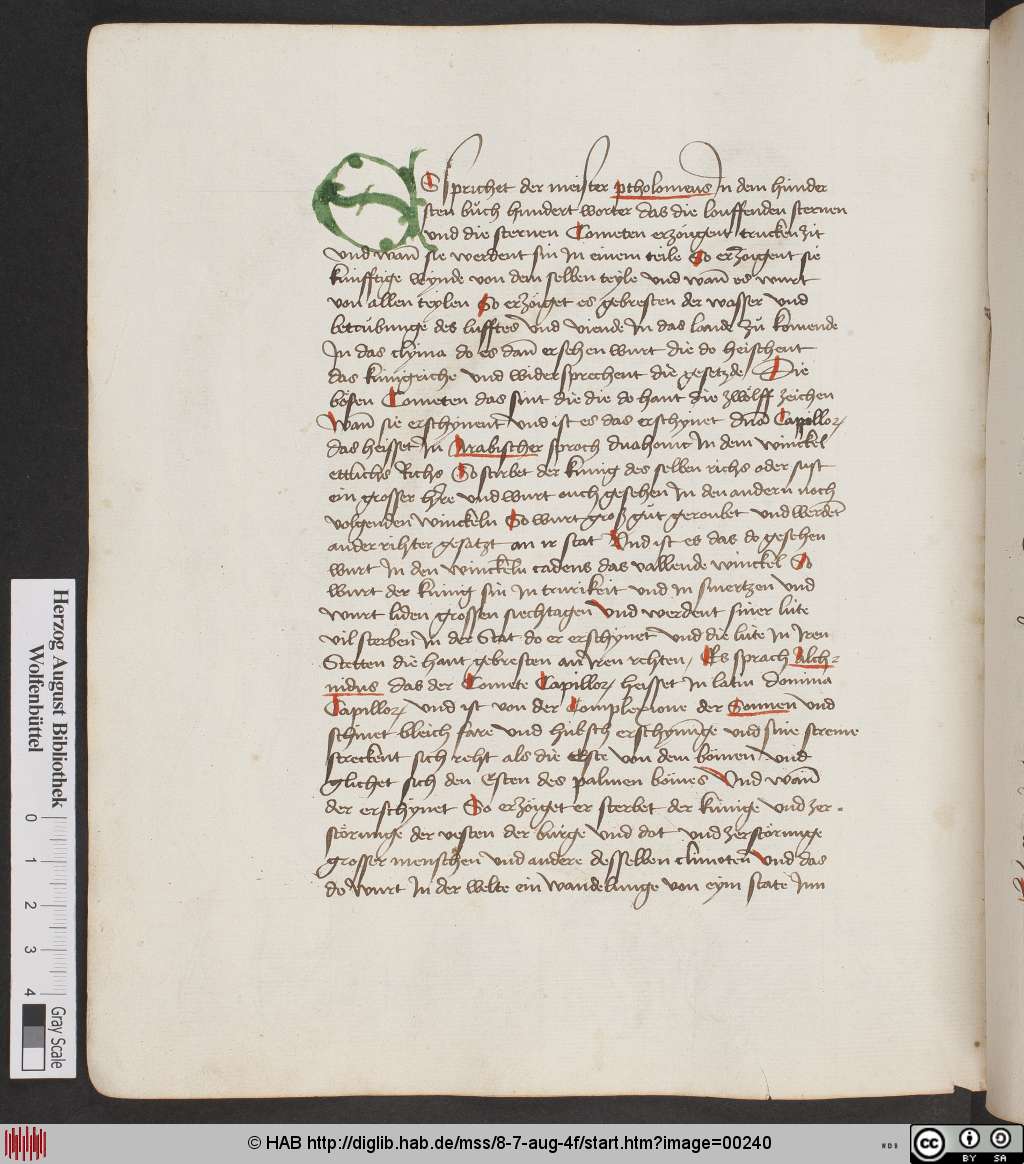 ES sprichet der meister ptholomeus In dem hunder
sten buch hundert worter das die louffenden sternen
vnd die sternen Cometen erzoigent trucken zit
vnd wan̄ sie werdent sin In einem teile So erzoigent sie
kunfftige wynde von dem selben teyle vnd wan̄ es wurt
von allen teylen So erzöiget es gebresten der wasser vnd
betrubunge des lufftes vnd viende In das lande zu komende
In das clyma do es dan̄ ersehen wurt die do heischent
das kunigriche vnd widersprechent die gesetzde Die
bösen Cometen das sint die die do hant die zwölff zeichen
Wan̄ sie erschynent vnd ist es das erschynet dn̄a Capilloꝝ
das heisset In Arabischer sproch In dem winckel
ettlichs Richs So stirbet der kunig des selben richs oder sust
ein grosser h're vnd wurt ouch gesehen In den andern noch
volgenden winckeln So wurt groß gut geroubet vnd werdēt
ander rihter gesatzt an ir stat Vnd ist es das do gesehen
wurt In den winckeln cadens das vallende winckel So
wurt der kunig sin In trurikeit vnd In smertzen vnd
wurt liden grossen siechtagen vnd werdent siner lute
vil sterben In der Stat do er erschynet vnd die lute In Iren
Stetten die hant gebresten an Iren rehten / Es sprach Alch-
indus das der Comete Capilloꝝ heisset In latin domina
Capilloꝝ vnd ist von der Complexione der Sonnen vnd
schinet bleich fare vnd hubsch erschynūge vnd sine streime
streckent sich reht als die Este von dem böimen vnd
glichet sich den Esten des palmen böimes Vnd wan̄
der erschynet So erzöiget er sterbet der kunige vnd zer-
störunge der vesten der burge vnd dot vnd zerstörunge
grosser menschen vnd andere desselben climoten vnd das
do wurt In der welte ein wandelunge von eym state Inn
Herzog August Bibliothek
Wolfenbüttel
0 1 2 3 4
Gray Scale
© HAB http://diglib.hab.de/mss/8-7-aug-4f/start.htm?image=00240
WDB
cc BY SA